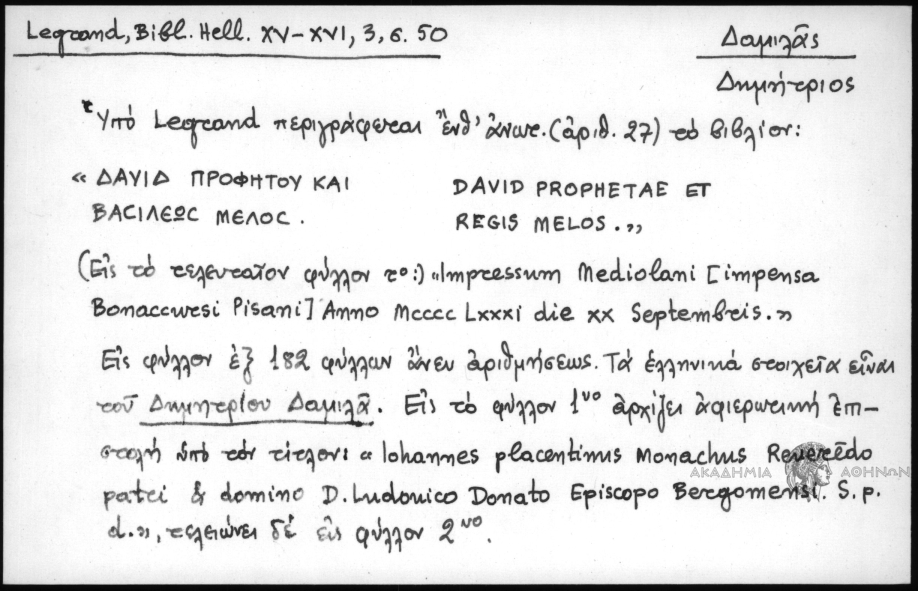 Legrand, Bibl. Hell. XV-XVI, 3, σ. 50
Δαμιλᾶς
Δημήτριος
Ὑπό Legrand περιγράφεται ἔνθ' ἄνωτ. (ἀριθ. 27) τό βιβλίον:
« ΔΑΥΙΔ ΠΡΟΦΗΤΟΥ ΚΑΙ DAVID PROPHETAE ET
ΒΑCΙΛΕΩC ΜΕΛΟC. REGIS MELOS.»
(Εἰς τό τελευταῖον φύλλον το:) «Impressum Mediolani [impensa
Bonaccursi Pisani] Anno Mcccc Lxxxi die xx Septembris.»
Εἰς φύλλον ἐξ 182 φύλλων ἄνευ ἀριθμήσεως. Τά ἑλληνικά στοιχεῖα εἶναι
τοῦ Δημητρίου Δαμιλᾶ. Εἰς τό φύλλον 1νο ἀρχίζει ἀφιερωτική ἐπι-
στολή ὑπό τόν τίτλον: « Iohannes placentinus Monachus Reverēdo
patri & domino D. Ludouico Donato Episcopo Bergomensi. S. p.
d.», τελειώνει δέ εἰς φύλλον 2νο.
ΑΚΑΔΗΜΙΑ ΑΘΗΝΩΝ